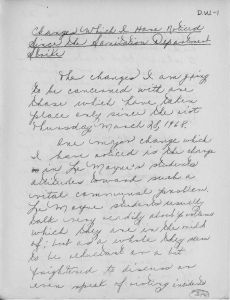 D.VII-1
Changes Which I Have Noticed
Since the Sanitation Department
Strike
The changes I am going
to be concerned with are
those which have taken
place only since the riot
Thursday March 28, 1968.
One major change which
I have noticed is the change
in Le Moyne's students
attitudes toward such a
vital communal problem.
Le Moyne students usually
talk very readily about problems
which they are in the midst
of; but as a whole they seem
to be reluctant or a bit
frightened to discuss or
even speak of rioting incidents